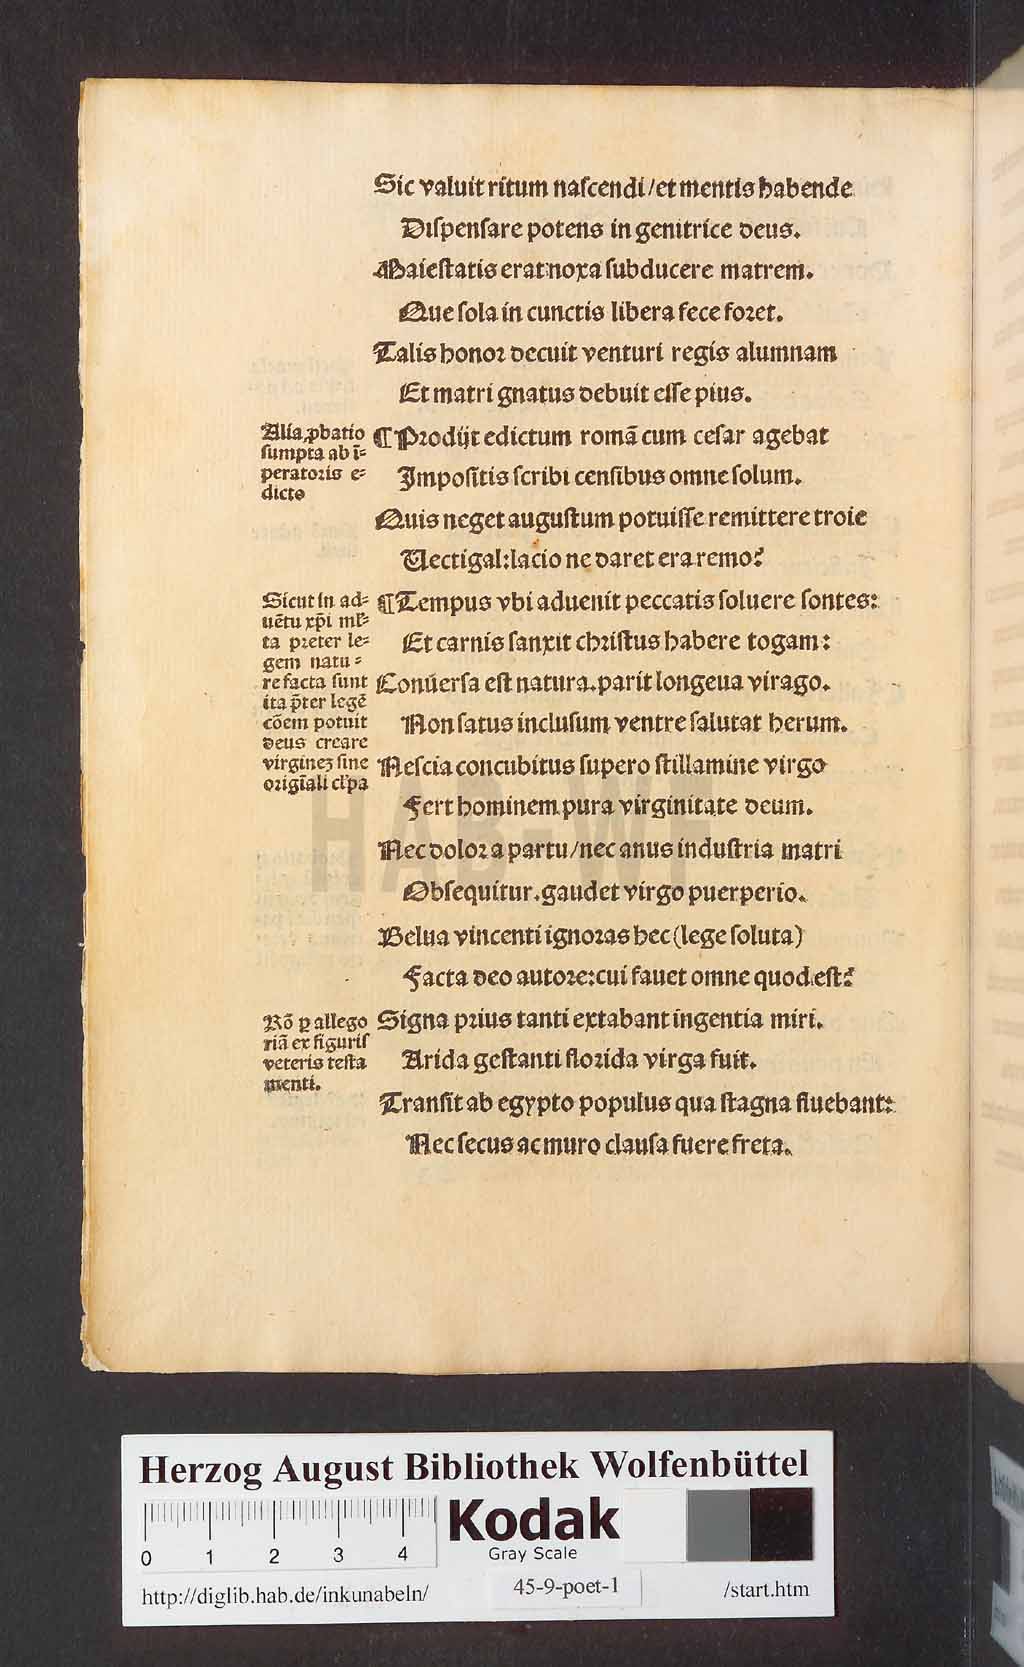 Sic valuit ritum naſcendi/et mentis habende
Diſpenſare potens in genitrice deus.
Maieſtatis erat noxa ſubducere matrem.
Que ſola in cunctis libera fece foret.
Talis honor decuit venturi regis alumnam
Et matri gnatus debuit eſſe pius.
Alia ꝓbatio
ſumpta ab ī⸗
peratoris e⸗
dicto
¶ Prodijt edictum romā cum ceſar agebat
Impoſitis ſcribi cenſibus omne ſolum.
Quis neget auguſtum potuiſſe remittere troie
Vectigal: lacio ne daret era remo?
Sicut in ad⸗
uētu xp̄i ml̄⸗
ta preter le⸗
gem natu⸗
re facta ſunt
ita p̄ter legē
cōem potuit
deus creare
virgineʒ ſine
origīali cl̓pa
¶ Tempus vbi aduenit peccatis ſoluere ſontes:
Et carnis ſanxit chriſtus habere togam:
Conuerſa eſt natura. parit longeua virago.
Non ſatus incluſum ventre ſalutat herum.
Neſcia concubitus ſupero ſtillamine virgo
Fert hominem pura virginitate deum.
Nec dolor a partu/nec anus induſtria matri
Obſequitur. gaudet virgo puerperio.
Belua vincenti ignoras hec (lege ſoluta)
Facta deo autore: cui fauet omne quod eſt?
Rō ꝑ allego
riā ex figuriſ
veteris teſta
menti.
Signa prius tanti extabant ingentia miri.
Arida geſtanti florida virga fuit.
Tranſit ab egypto populus qua ſtagna fluebant:
Nec ſecus ac muro clauſa fuere freta.
HAB-WF
Herzog August Bibliothek Wolfenbüttel
0 1 2 3 4
Kodak
Gray Scale
http://diglib.hab.de/inkunabeln/ 45-9-poet-1 /start.htm